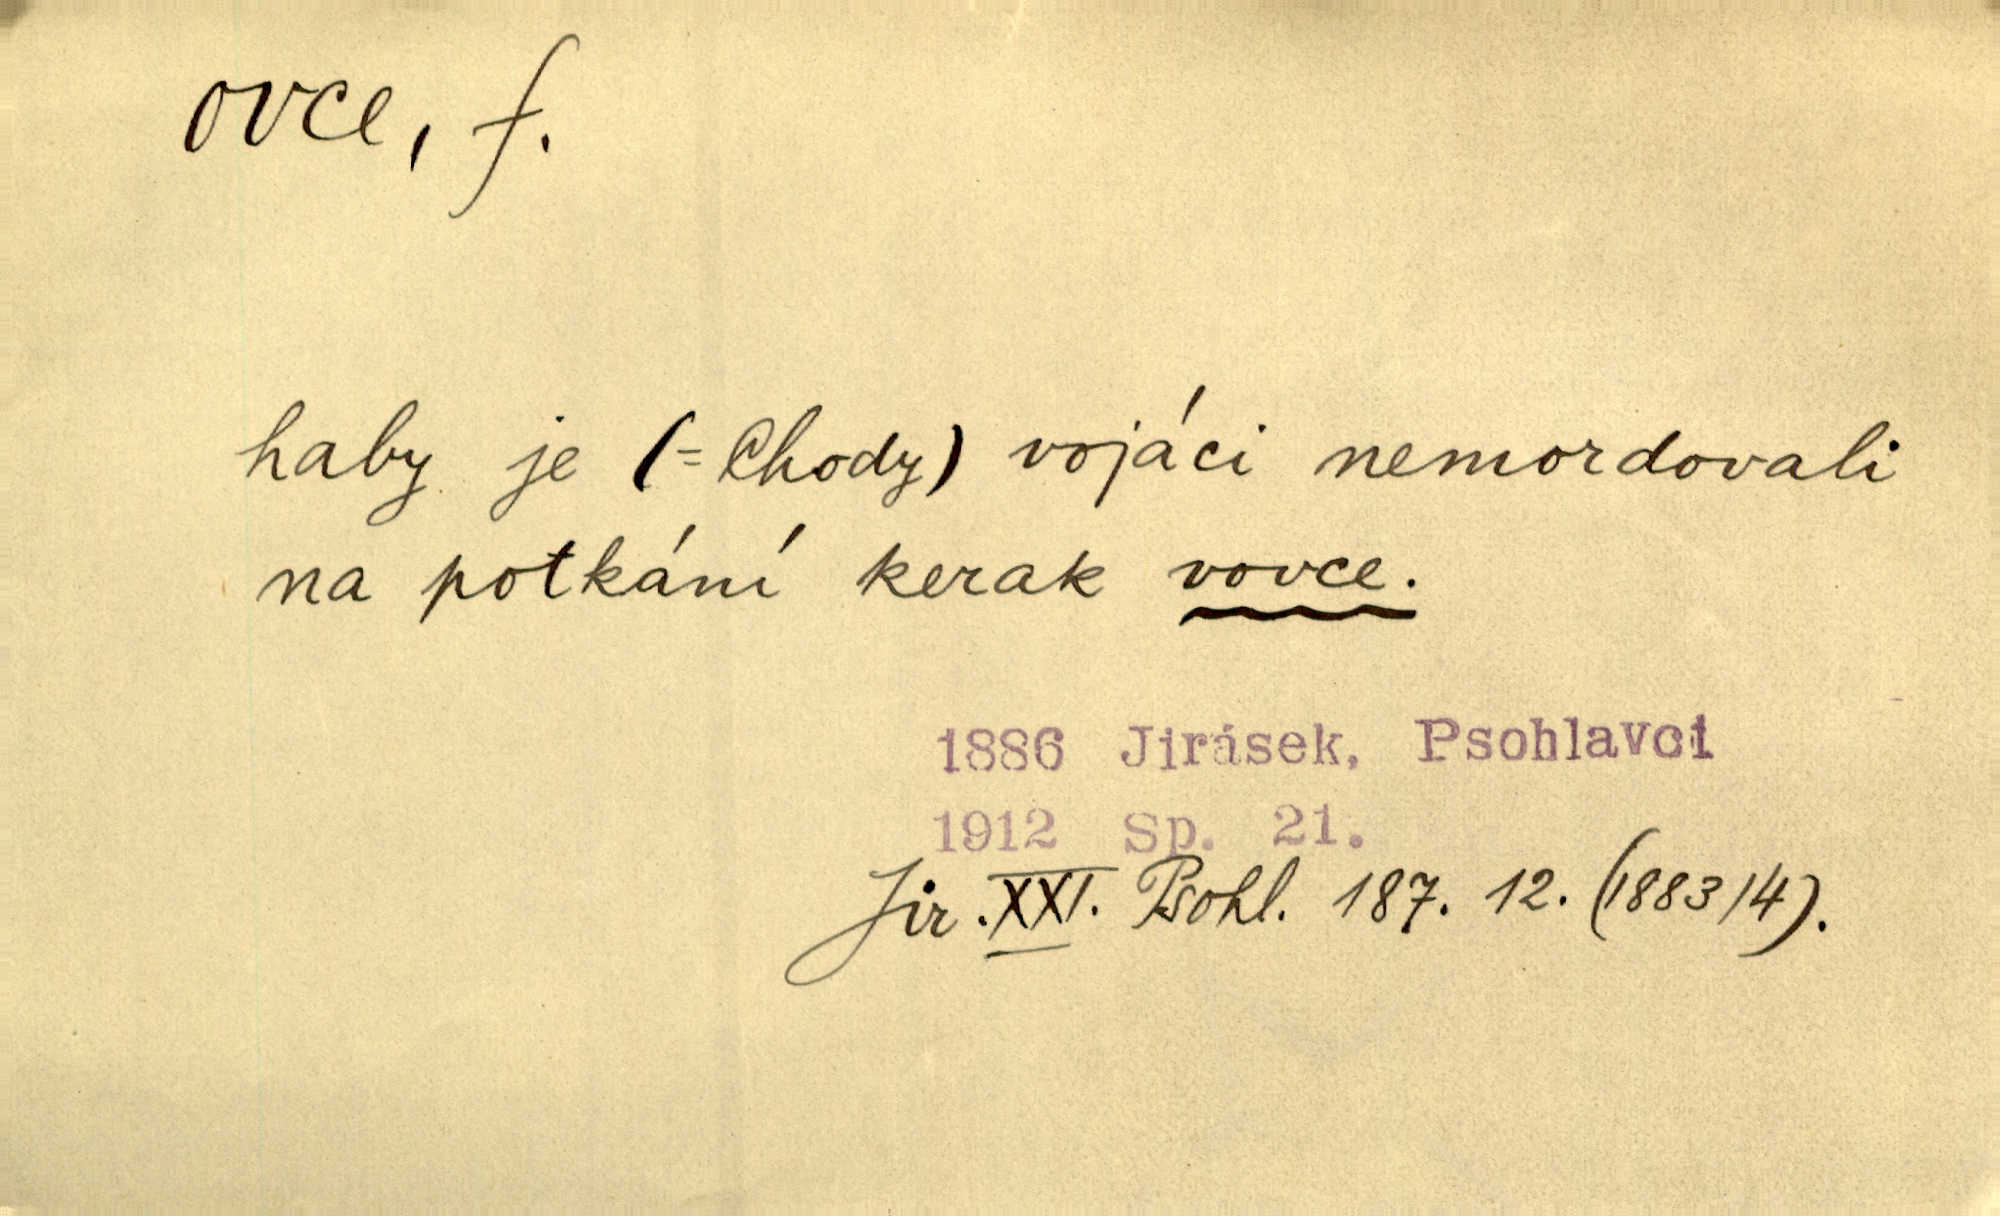 ovce, f.
haby je (= Chody) vojáci nemordovali
na potkání kerak vovce.
1886 Jirásek, Psohlavci
1912 Sp. 21.
Jir. XXI. Psohl. 187. 12. (1883/4).